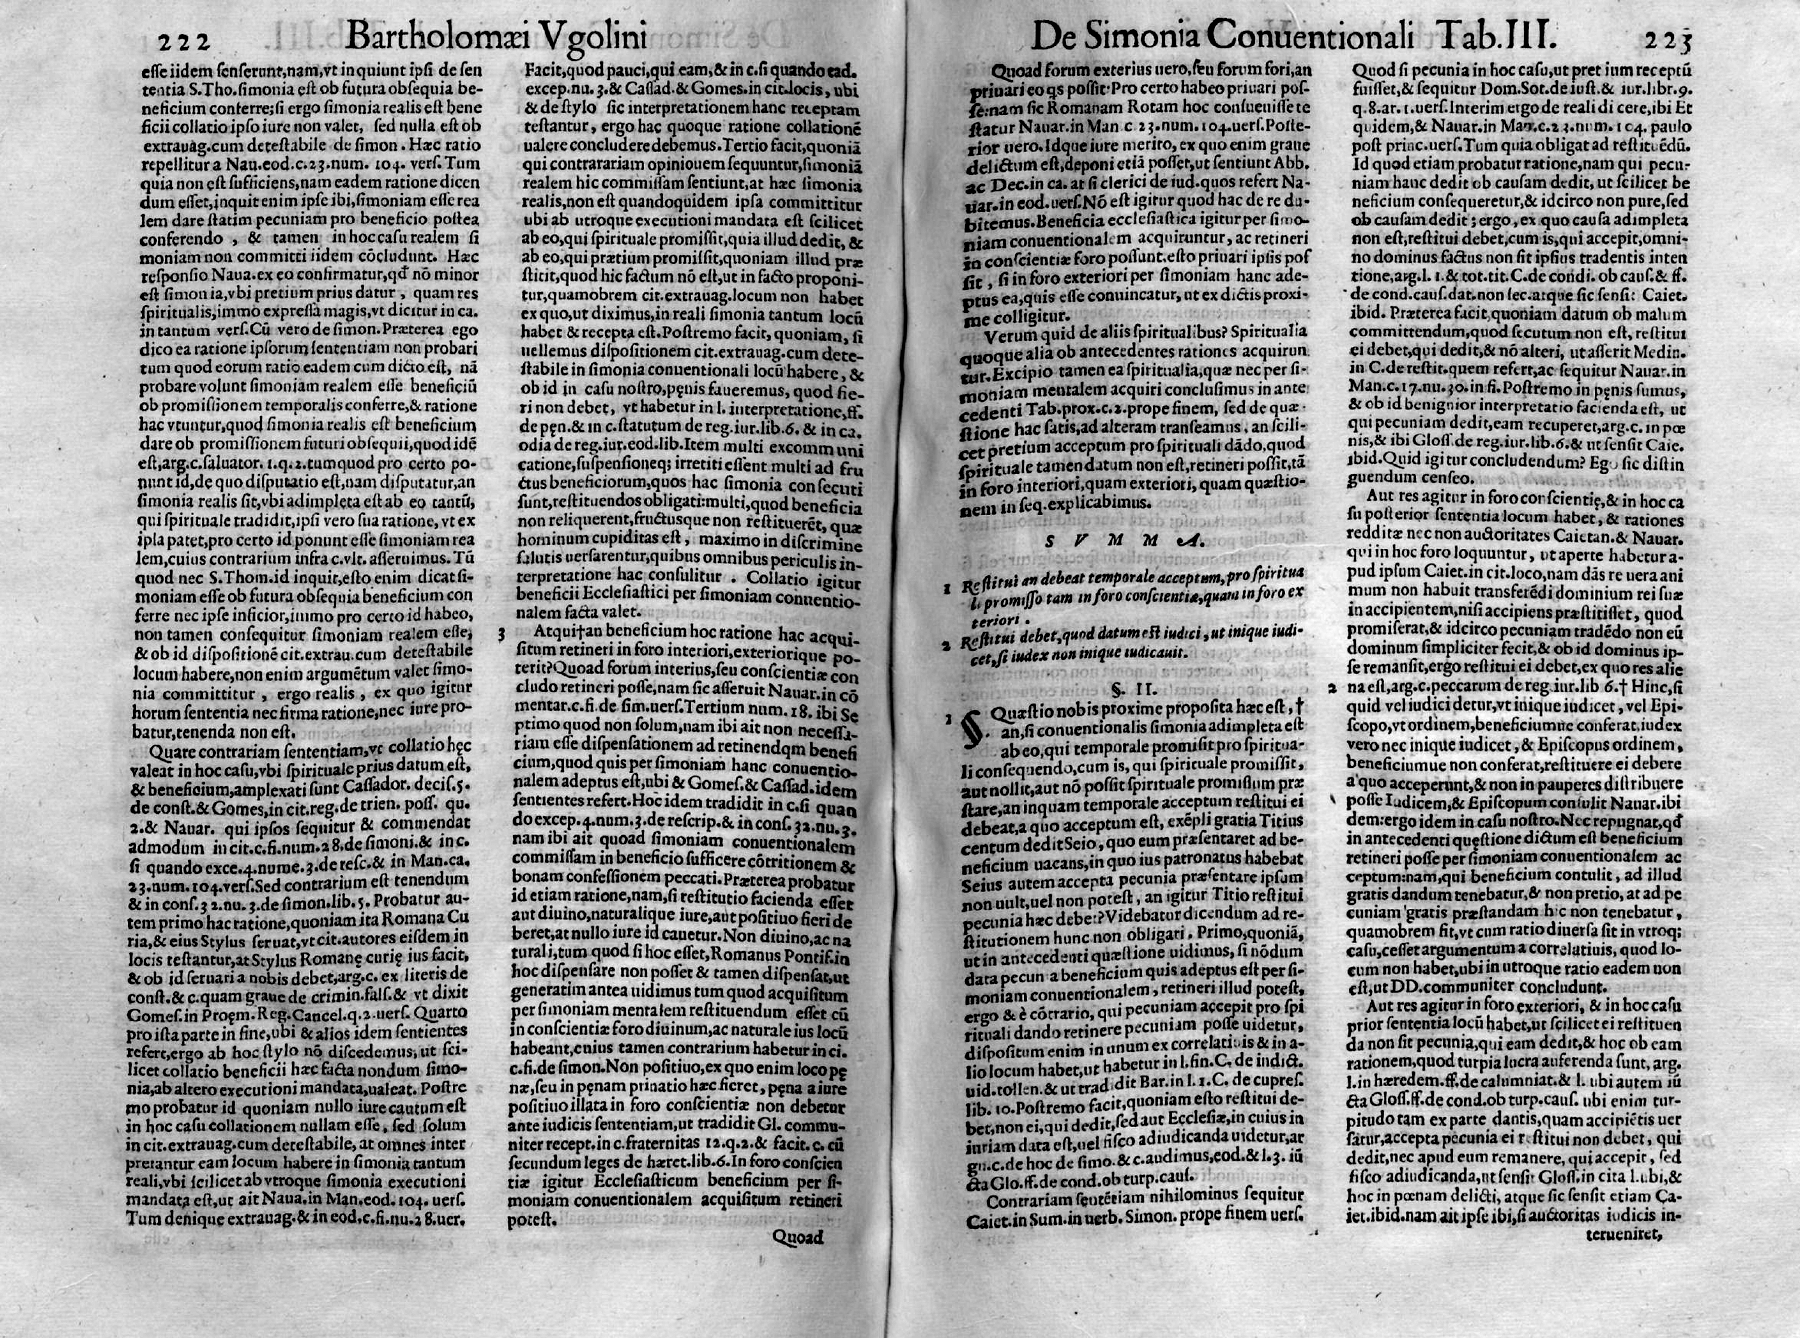 222 Bartholomæi Vgolini
esse iidem senserunt,nam,vt inquiunt ipsi de sen
tentia S.Tho.simonia est ob futura obsequia be-
neficium conferre;si ergo simonia realis est bene
ficii collatio ipso iure non valet, sed nulla est ob
extrauag.cum detestabile de simon. Hæc ratio
repellitur a Nau.eod.c.23.num. 104. vers. Tum
quia non est sufficiens,nam eadem ratione dicen
dum esset,inquit enim ipse ibi,simoniam esse rea
lem dare statim pecuniam pro beneficio postea
conferendo , & tamen in hoc casu realem si
moniam non committi iidem cōcludunt. Hæc
responsio Naua.ex eo confirmatur,qđ nō minor
est simonia,vbi pretium prius datur , quam res
spiritualis,immo expressa magis,vt dicitur in ca.
in tantum vers.Cū vero de simon.Præterea ego
dico ea ratione ipsorum sententiam non probari
tum quod eorum ratio eadem cum dicto est, nā
probare volunt simoniam realem esse beneficiū
ob promissionem temporalis conferre,& ratione
hac vtuntur,quod simonia realis est beneficium
dare ob promissionem futuri obsequii,quod idē
est,arg.c.saluator. 1.q.2.tumquod pro certo po-
nunt id,de quo disputatio est,nam disputatur,an
simonia realis sit,vbi adimpleta est ab eo tantū,
qui spirituale tradidit,ipsi vero sua ratione, vt ex
ipsa patet,pro certo id ponunt esse simoniam rea
lem,cuius contrarium infra c.vlt. asseruimus. Tū
quod nec S.Thom.id inquit,esto enim dicat si-
moniam esse ob futura obsequia beneficium con
ferre nec ipse inficior,immo pro certo id habeo,
non tamen consequitur simoniam realem esse,
& ob id dispositionē cit.extrau.cum detestabile
locum habere,non enim argumētum valet simo-
nia committitur , ergo realis , ex quo igitur
horum sententia nec firma ratione,nec iure pro-
batur,tenenda non est.
Quare contrariam sententiam,vt collatio hęc
valeat in hoc casu,vbi spirituale prius datum est,
& beneficium,amplexati sunt Cassador. decis.5.
de const.& Gomes,in cit.reg.de trien. poss. qu.
2.& Nauar. qui ipsos sequitur & commendat
admodum in cit.c.fi.num.28.de simoni.& in c.
si quando exce.4.nume.3.de resc.& in Man.ca.
23.num.104.vers.Sed contrarium est tenendum
& in cons.32.nu.3.de simon.lib.5. Probatur au-
tem primo hac ratione,quoniam ita Romana Cu
ria,& eius Stylus seruat,vt cit.autores eisdem in
locis testantur,at Stylus Romanę curię ius facit,
& ob id seruari a nobis debet,arg.c. ex literis de
const.& c.quam graue de crimin.fals.& vt dixit
Gomes.in Proęm.Reg.Cancel.q.2.uers. Quarto
pro ista parte in fine,ubi & alios idem sentientes
refert,ergo ab hoc stylo nō discedemus,ut sci-
licet collatio beneficii hæc facta nondum simo-
nia,ab altero executioni mandata,ualeat. Postre
mo probatur id quoniam nullo iure cautum est
in hoc casu collationem nullam esse, sed solum
in cit.extrauag.cum detestabile, at omnes inter
pretantur eam locum habere in simonia tantum
reali,vbi scilicet ab vtroque simonia executioni
mandata est,ut ait Naua.in Man.eod.104. uers.
Tum denique extrauag.& in eod.c.fi.nu.28.uer.
Facit,quod pauci,qui eam,& in c.si quando ead.
excep.nu. 3.& Cassad.& Gomes.in cit.locis, ubi
& de stylo sic interpretationem hanc receptam
testantur, ergo hac quoque ratione collationē
ualere concludere debemus.Tertio facit,quoniā
qui contrarariam opiniouem sequuntur,simoniā
realem hic commissam sentiunt,at hæc simonia
realis,non est quandoquidem ipsa committitur
ubi ab utroque executioni mandata est scilicet
ab eo,qui spirituale promissit,quia illud dedit, &
ab eo,qui prætium promissit,quoniam illud præ
stitit,quod hic factum nō est,ut in facto proponi-
tur,quamobrem cit.extrauag.locum non habet
ex quo,ut diximus,in reali simonia tantum locū
habet & recepta est.Postremo facit, quoniam, si
uellemus dispositionem cit.extrauag.cum dete-
stabile in simonia conuentionali locū habere, &
ob id in casu nostro,pęnis faueremus, quod fie-
ri non debet, vt habetur in l. interpretatione,ff.
de pęn.& in c.statutum de reg.iur.lib.6. & in ca.
odia de reg.iur.eod.lib.Item multi excommuni
catione,suspensioneq; irretiti essent multi ad fru
ctus beneficiorum,quos hac simonia consecuti
sunt,restituendos obligati:multi,quod beneficia
non reliquerent,fructusque non restituerēt, quæ
hominum cupiditas est, maximo in discrimine
salutis uersarentur,quibus omnibus periculis in-
terpretatione hac consulitur . Collatio igitur
beneficii Ecclesiastici per simoniam conuentio-
nalem facta valet.
3 Atqui†an beneficium hoc ratione hac acqui-
situm retineri in foro interiori,exteriorique po-
terit?Quoad forum interius,seu conscientiæ con
cludo retineri posse,nam sic asseruit Nauar.in cō
mentar.c.fi.de sim.uers.Tertium num.18. ibi Se
ptimo quod non solum,nam ibi ait non necessa-
riam esse dispensationem ad retinendqm benefi
cium,quod quis per simoniam hanc conuentio-
nalem adeptus est,ubi & Gomes.& Cassad.idem
sentientes refert.Hoc idem tradidit in c.si quan
do excep.4.num.3.de rescrip.& in cons.32.nu.3.
nam ibi ait quoad simoniam conuentionalem
commissam in beneficio sufficere cōtritionem &
bonam confessionem peccati.Præterea probatur
id etiam ratione,nam,si restitutio facienda esset
aut diuino,naturalique iure,aut positiuo fieri de
beret,at nullo iure id cauetur.Non diuino,ac na
turali,tum quod si hoc esset,Romanus Pontif.in
hoc dispensare non posset & tamen dispensat,ut
generatim antea uidimus tum quod acquisitum
per simoniam mentalem restituendum esset cū
in conscientiæ foro diuinum,ac naturale ius locū
habeant,cuius tamen contrarium habetur in ci.
c.fi.de simon.Non positiuo,ex quo enim loco pę
næ,seu in pęnam priuatio hæc fieret, pęna a iure
positiuo illata in foro conscientiæ non debetur
ante iudicis sententiam,ut tradidit Gl. commu-
niter recept.in c.fraternitas 12.q.2.& facit.c. cū
secundum leges de hæret.lib.6.In foro conscien
tiæ igitur Ecclesiasticum beneficium per si-
moniam conuentionalem acquisitum retineri
potest.
Quoad
De Simonia Conuentionali Tab.III. 223
Quoad forum exterius uero,seu forum fori,an
priuari eo qs possit·Pro certo habeo priuari pos-
se:nam sic Romanam Rotam hoc consueuisse te
statur Nauar.in Man c 23.num.104.uers.Poste-
rior uero.Idque iure merito, ex quo enim graue
delictum est,deponi etiā posset,ut sentiunt Abb.
ac Dec.in ca. at si clerici de iud.quos refert Na-
uar.in eod.uers.Nō est igitur quod hac de re du-
bitemus.Beneficia ecclesiastica igitur per simo-
niam conuentionalem acquiruntur, ac retineri
in conscientiæ foro possunt.esto priuari ipsis pos
sit , si in foro exteriori per simoniam hanc ade-
ptus ea,quis esse conuincatur,ut ex dictis proxi-
me colligitur.
Verum quid de aliis spiritualibus? Spiritualia
quoque alia ob antecedentes rationes acquirun
tur.Excipio tamen ea spiritualia,quæ nec per si-
moniam mentalem acquiri conclusimus in ante
cedenti Tab.prox.c.2.prope finem, sed de quæ-
stione hac satis,ad alteram transeamus, an scili-
cet pretium acceptum pro spirituali dādo,quod
spirituale tamen datum non est,retineri possit,tā
in foro interiori,quam exteriori, quam quæstio-
nem in seq.explicabimus.
S V M M A.
1 Restitui an debeat temporale acceptum,pro spiritua
li promisso tam in foro conscientiæ,quam in foro ex
teriori .
2 Restitui debet,quod datum est iudici , ut inique iudi-
cet,si iudex non inique iudicauit.
§. II.
1 §. Quæstio nobis proxime proposita hæc est, †
an,si conuentionalis simonia adimpleta est
ab eo,qui temporale promisit pro spiritua-
li consequendo,cum is, qui spirituale promissit,
aut nollit,aut nō possit spirituale promissum præ
stare,an inquam temporale acceptum restitui ei
debeat,a quo acceptum est, exēpli gratia Titius
centum dedit Seio, quo eum præsentaret ad be-
neficium uacans,in quo ius patronatus habebat
Seius autem accepta pecunia præsentare ipsum
non uult,uel non potest, an igitur Titio restitui
pecunia hæc debet?Videbatur dicendum ad re-
stitutionem hunc non obligari. Primo,quoniā,
ut in antecedenti quæstione uidimus, si nōdum
data pecunia beneficium quis adeptus est per si-
moniam conuentionalem, retineri illud potest,
ergo & è cōtrario, qui pecuniam accepit pro spi
rituali dando retinere pecuniam posse uidetur,
dispositum enim in unum ex correlatiuis & in a-
lio locum habet,ut habetur in l.fin.C. de indict.
uid.tollen.& ut tradidit Bar.in l.1.C. de cupres.
lib. 10.Postremo facit,quoniam esto restitui de-
bet,non ei,qui dedit,sed aut Ecclesiæ,in cuius in
iuriam data est,uel fisco adiudicanda uidetur,ar
gu.c.de hoc de simo.& c.audimus,eod.& l.3. iū
cta Glo.ff.de cond.ob turp.caus.
Contrariam sentētiam nihilominus sequitur
Caiet.in Sum.in uerb. Simon. prope finem uers.
Quod si pecunia in hoc casu,ut pretium receptū
fuisset,& sequitur Dom.Sot.de iust.& iur.libr.9.
q.8.ar.1.uers.Interim ergo de reali dicere,ibi Et
quidem,& Nauar.in Man.c.23.num.104. paulo
post princ.uers.Tum quia obligat ad restituēdū.
Id quod etiam probatur ratione,nam qui pecu-
niam hanc dedit ob causam dedit, ut scilicet be
neficium consequeretur,& idcirco non pure,sed
ob causam dedit; ergo, ex quo causa adimpleta
non est,restitui debet,cum is,qui accepit,omni-
no dominus factus non sit ipsius tradentis inten
tione,arg.l. 1.& tot.tit.C.de condi. ob caus.& ff.
de cond.caus.dat.non sec.atque sic sensit Caiet.
ibid. Præterea facit,quoniam datum ob malum
committendum,quod secutum non est, restitui
ei debet,qui dedit,& nō alteri, ut asserit Medin.
in C.de restit.quem refert,ac sequitur Nauar.in
Man.c.17.nu.30.in fi.Postremo in pęnis sumus,
& ob id benignior interpretatio facienda est, ut
qui pecuniam dedit,eam recuperet,arg.c. in pœ
nis,& ibi Gloss.de reg.iur.lib.6.& ut sensit Caie.
ibid.Quid igitur concludendum? Ego sic distin
guendum censeo.
Aut res agitur in foro conscientię,& in hoc ca
su posterior sententia locum habet,& rationes
redditæ nec non auctoritates Caietan.& Nauar.
qui in hoc foro loquuntur, ut aperte habetur a-
pud ipsum Caiet.in cit.loco,nam dās re uera ani
mum non habuit transferēdi dominium rei suæ
in accipientem,nisi accipiens præstitisset, quod
promiserat,& idcirco pecuniam tradēdo non eū
dominum simpliciter fecit,& ob id dominus ip-
se remansit,ergo restitui ei debet,ex quo res alie
2 na est,arg.c.peccarum de reg.iur.lib 6.† Hinc,si
quid vel iudici detur,vt inique iudicet, vel Epi-
scopo,vt ordinem,beneficiumue conferat,iudex
vero nec inique iudicet,& Episcopus ordinem,
beneficiumue non conferat,restituere ei debere
a quo acceperunt,& non in pauperes distribuere
posse Iudicem,& Episcopum consulit Nauar.ibi
dem:ergo idem in casu nostro.Nec repugnat,qđ
in antecedenti quęstione dictum est beneficium
retineri posse per simoniam conuentionalem ac
ceptum:nam,qui beneficium contulit, ad illud
gratis dandum tenebatur,& non pretio, at ad pe
cuniam gratis præstandam hic non tenebatur,
quamobrem fit,vt cum ratio diuersa sit in vtroq;
casu,cesset argumentum a correlatiuis, quod lo-
cum non habet,ubi in utroque ratio eadem non
est,ut DD.communiter concludunt.
Aut res agitur in foro exteriori, & in hoc casu
prior sententia locū habet,ut scilicet ei restituen
da non sit pecunia,qui eam dedit,& hoc ob eam
rationem,quod turpia lucra auferenda sunt, arg.
l.in hæredem.ff.de calumniat.& l. ubi autem iū
cta Gloss.ff.de cond.ob turp.caus. ubi enim tur-
pitudo tam ex parte dantis,quam accipiētis uer
satur,accepta pecunia ei restitui non debet, qui
dedit,nec apud eum remanere, qui accepit, sed
fisco adiudicanda,ut sensit Gloss.in cita l.ubi,&
hoc in pœnam delicti, atque sic sensit etiam Ca-
iet.ibid.nam ait ipse ibi,si auctoritas iudicis in-
terueniret,